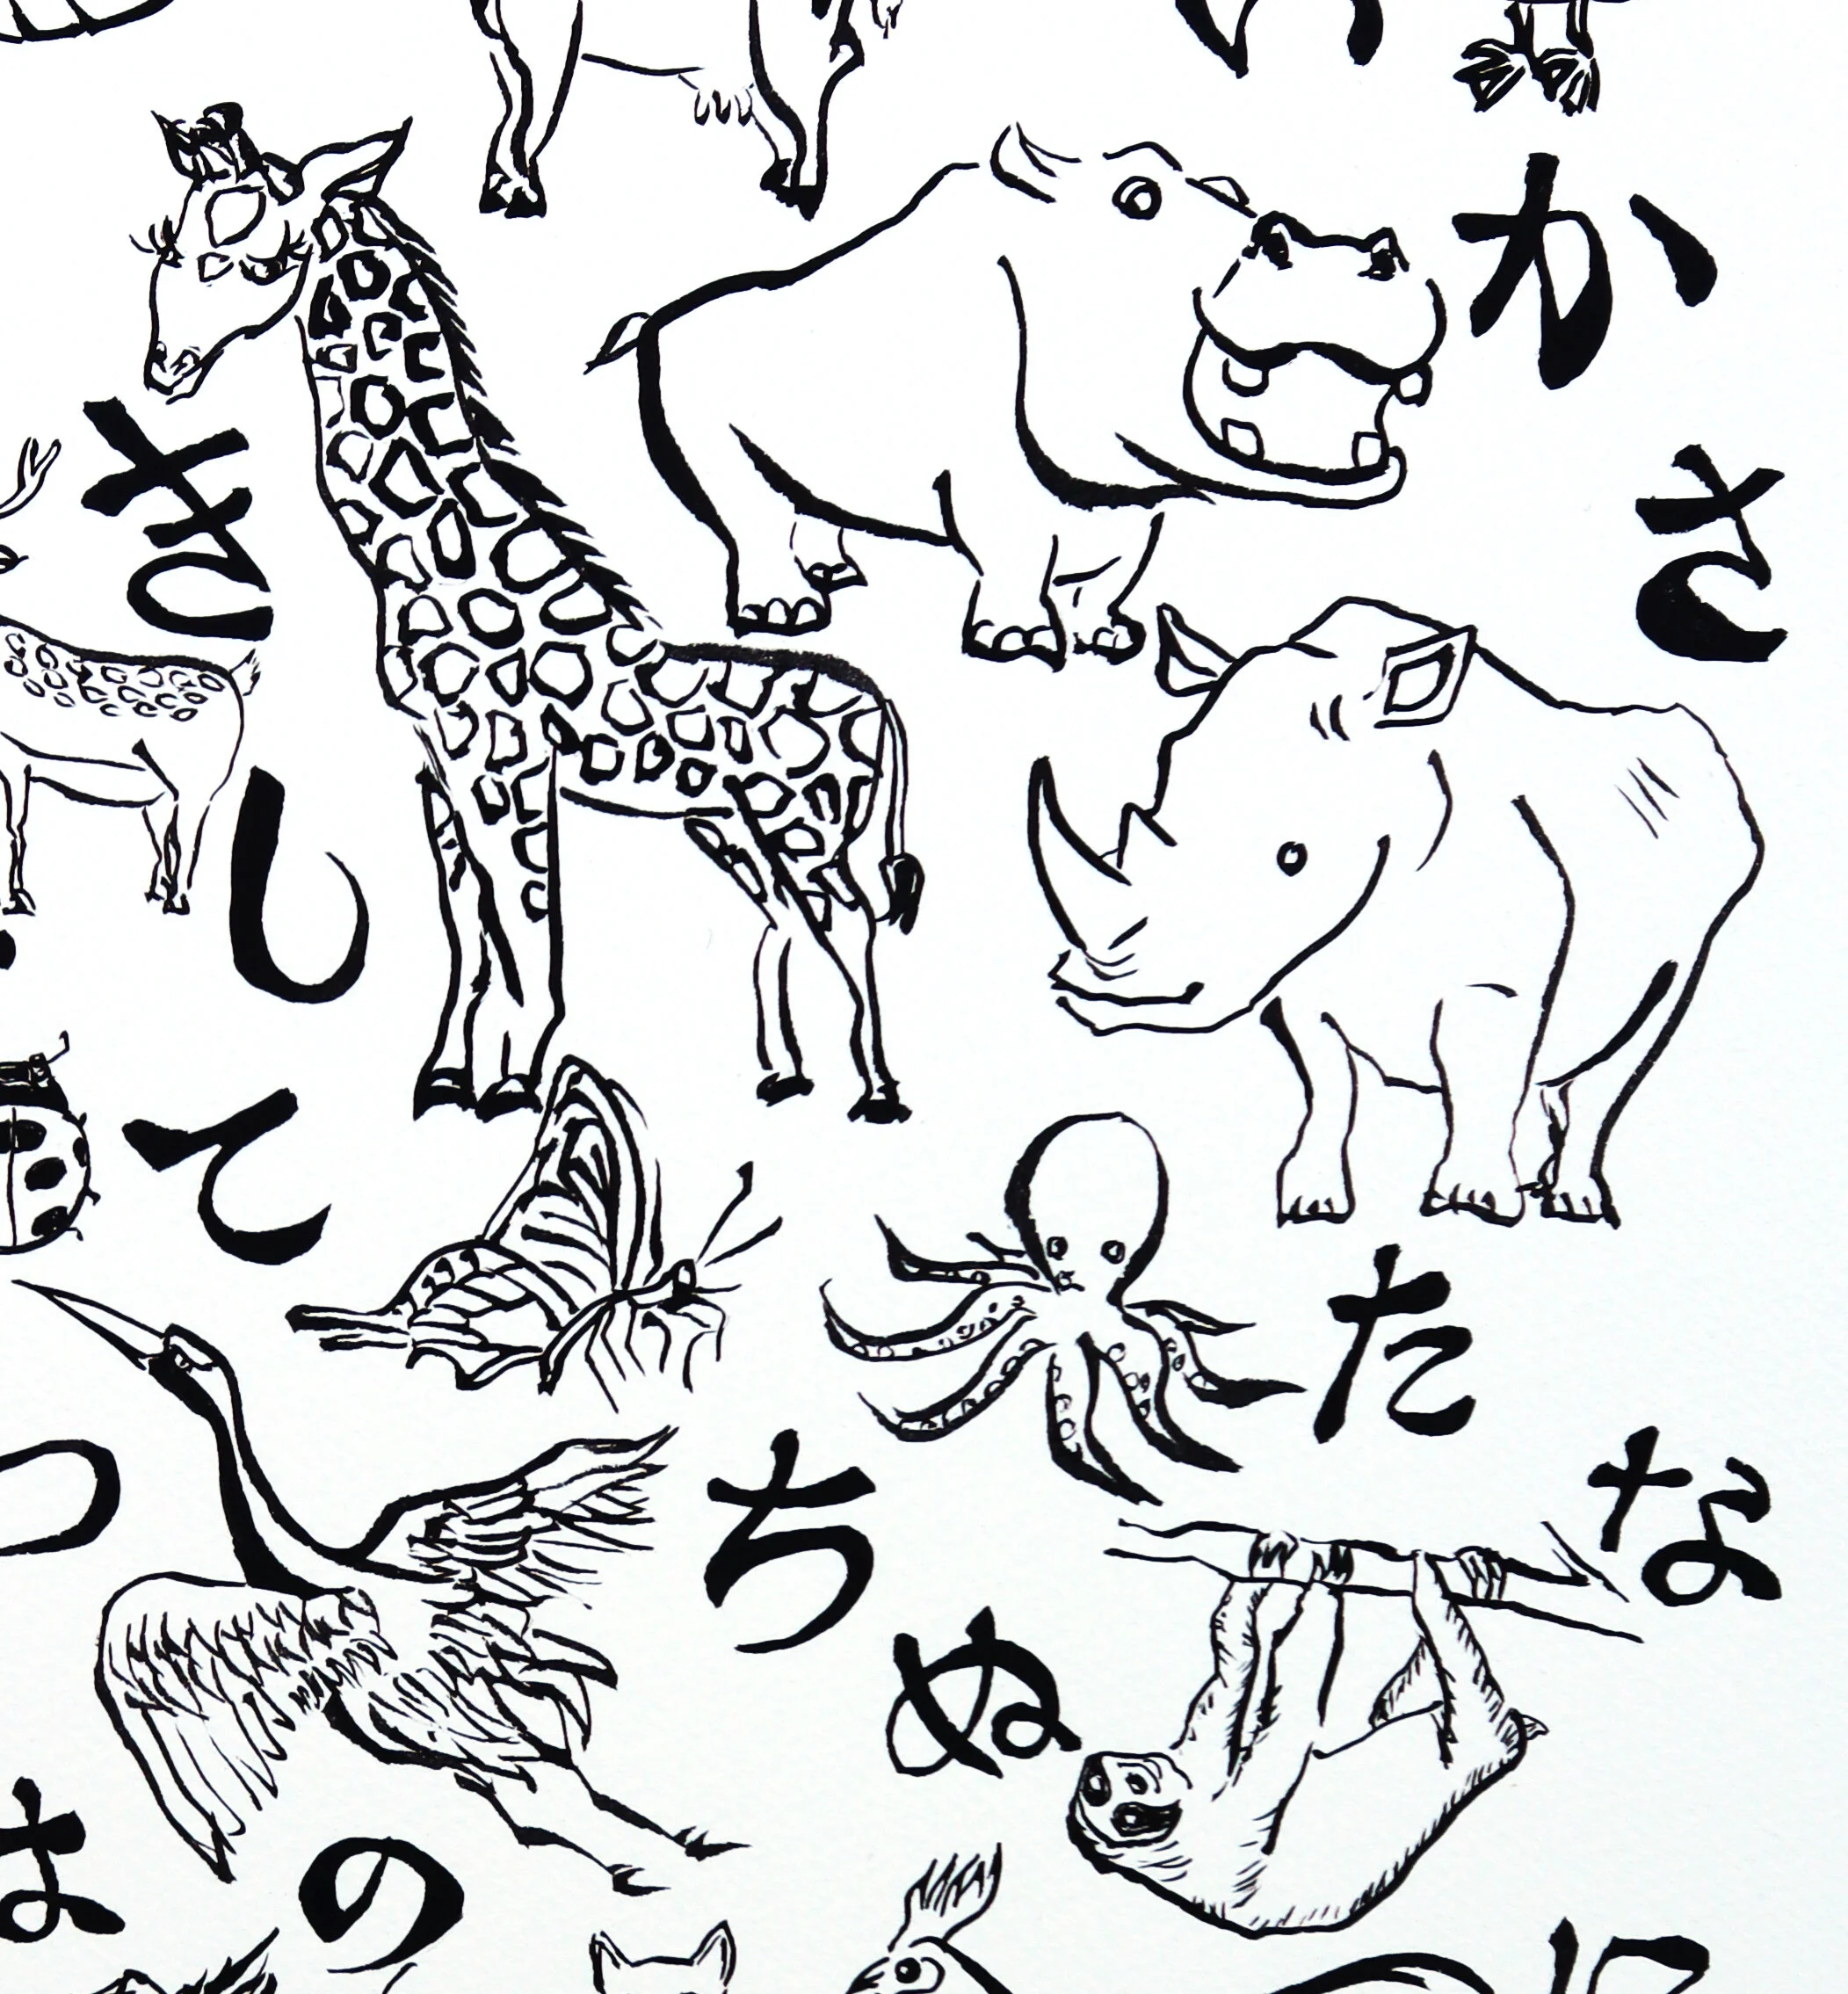 か
さ
き
し
て
た
つ
ち
な
ぬ
は
の
に